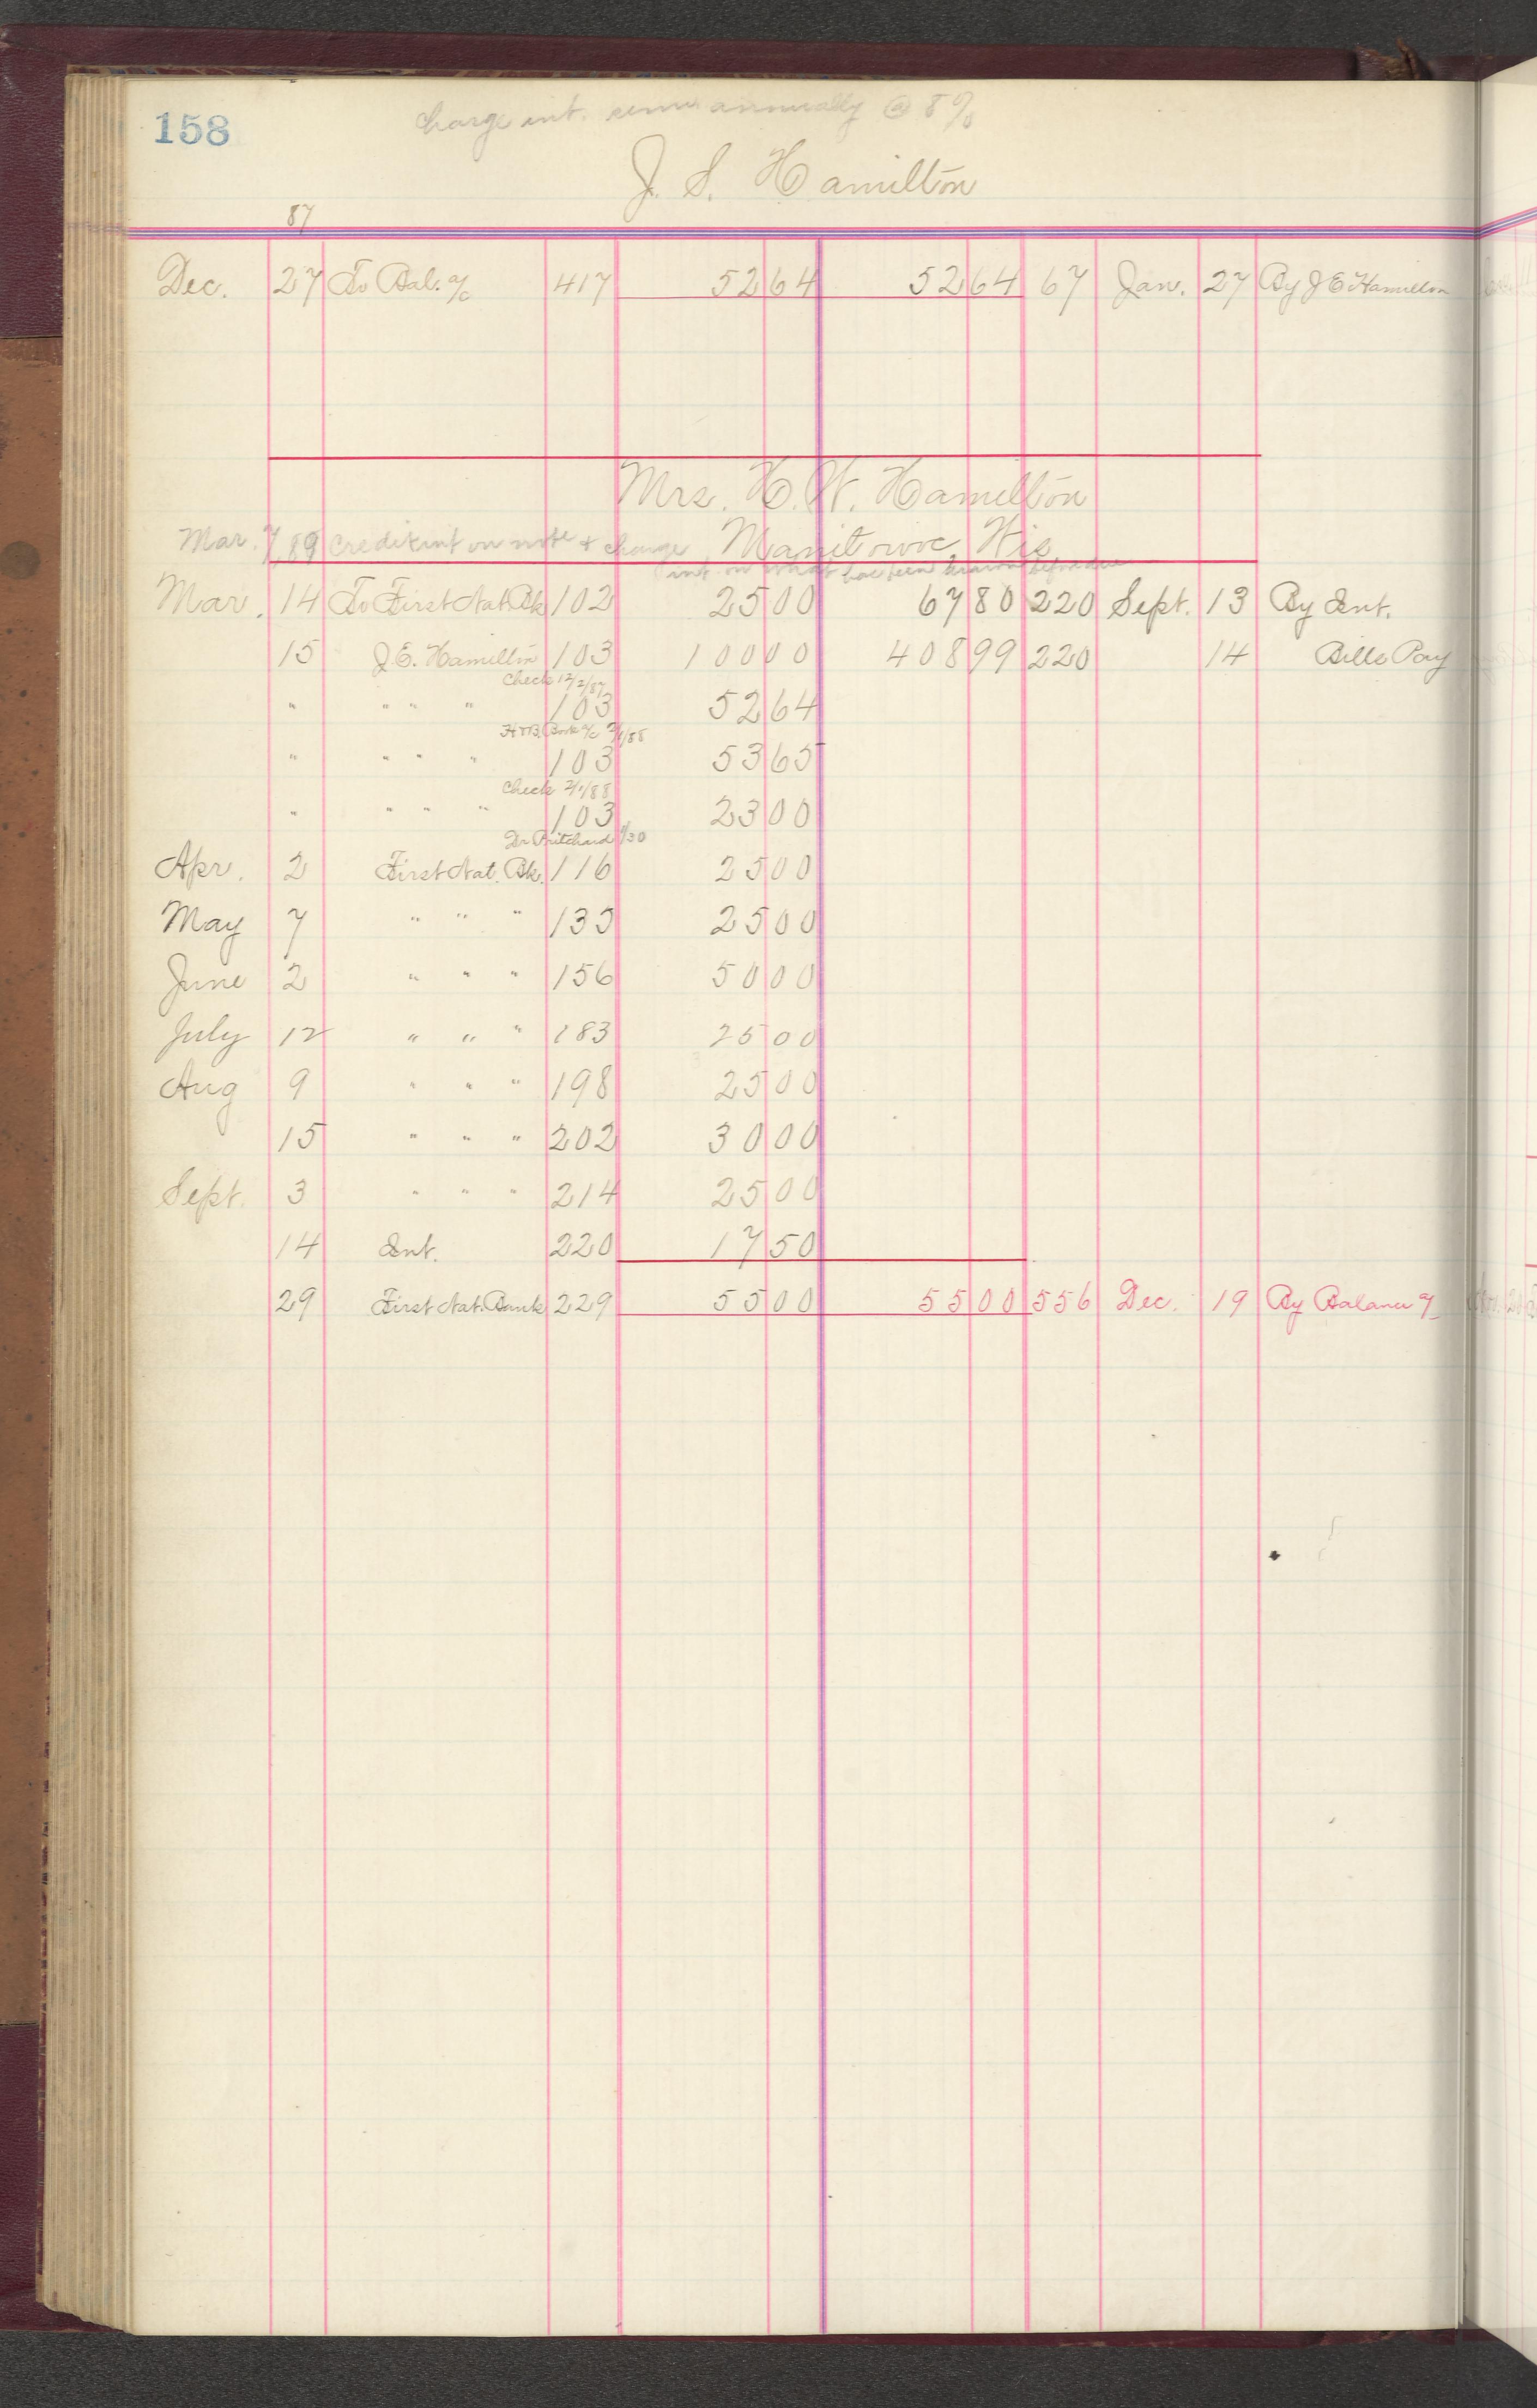 158
Charge int. semi annually @ 8%
J. S. Hamilton
87
Dec. 27 To Bal. a/c 417 52 64 52 64 67 Jan. 27 By J E Hamilton
Mrs. H. W. Hamilton
Manitowoc, Wis
Mar. 7, 89 Credit int on note & charge
int on what has been drawn before due
Mar. 14 To First Nat Bk 102 25 00 67 80 220 Sept. 13 By Int.
15 J. E. Hamilton 103 100 00 408 99 220 14 Bills Pay
Check 12/2/87
" " " " 103 52 64
H & B. Book a/c 2/1/88
" " " " 103 53 65
Check 2/1/88
" " " " 103 23 00
Dr Pritchard 1/30
Apr. 2 First Nat. Bk. 116 25 00
May 7 " " " 135 25 00
June 2 " " " 156 50 00
July 12 " " " 183 25 00
Aug 9 " " " 198 25 00
15 " " " 202 30 00
Sept. 3 " " " 214 25 00
14 Int. 220 17 50
29 First Nat. Bank 229 55 00 55 00 556 Dec. 19 By Balance a/c